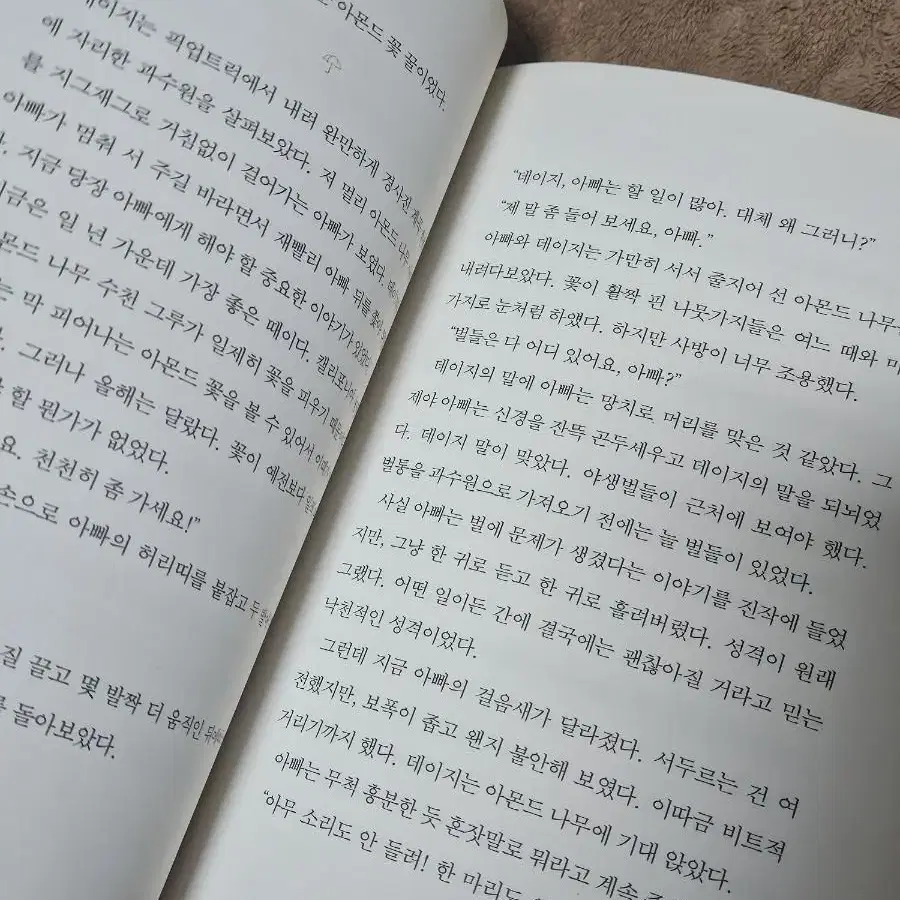 아몬드 꽃 꿀이었다.
데이지는 픽업트럭에서 내려 완만하게 경사진
에 자리한 과수원을 살펴보았다. 저 멀리 아몬드 나무
를 지그재그로 거침없이 걸어가는 아빠가 보였다.
아빠가 멈춰 서 주길 바라면서 재빨리 아빠 뒤를
지금 당장 아빠에게 해야 할 중요한 이야기가 있었
지금은 일 년 가운데 가장 좋은 때이다. 캘리포니아
몬드 나무 수천 그루가 일제히 꽃을 피우기 때문
는 막 피어나는 아몬드 꽃을 볼 수 있어서
그러나 올해는 달랐다. 꽃이 예전보다 일
할 뭔가가 없었다.
요. 천천히 좀 가세요!”
손으로 아빠의 허리띠를 붙잡고 두
질 끌고 몇 발짝 더 움직인 뒤에
를 돌아보았다.
“데이지, 아빠는 할 일이 많아. 대체 왜 그러니?”
“제 말 좀 들어 보세요, 아빠.”
아빠와 데이지는 가만히 서서 줄지어 선 아몬드 나무
내려다보았다. 꽃이 활짝 핀 나뭇가지들은 여느 때와 마
가지로 눈처럼 하얬다. 하지만 사방이 너무 조용했다.
“벌들은 다 어디 있어요, 아빠?”
데이지의 말에 아빠는 망치로 머리를 맞은 것 같았다. 그
제야 아빠는 신경을 잔뜩 곤두세우고 데이지의 말을 되뇌었
다. 데이지 말이 맞았다. 야생벌들이 근처에 보여야 했다.
벌통을 과수원으로 가져오기 전에는 늘 벌들이 있었다.
사실 아빠는 벌에 문제가 생겼다는 이야기를 진작에 들었
지만, 그냥 한 귀로 듣고 한 귀로 흘려버렸다. 성격이 원래
그랬다. 어떤 일이든 간에 결국에는 괜찮아질 거라고 믿는
낙천적인 성격이었다.
그런데 지금 아빠의 걸음새가 달라졌다. 서두르는 건 여
전했지만, 보폭이 좁고 왠지 불안해 보였다. 이따금 비트적
거리기까지 했다. 데이지는 아몬드 나무에 기대 앉았다.
아빠는 무척 흥분한 듯 혼잣말로 뭐라고 계속
“아무 소리도 안 들려! 한 마리도